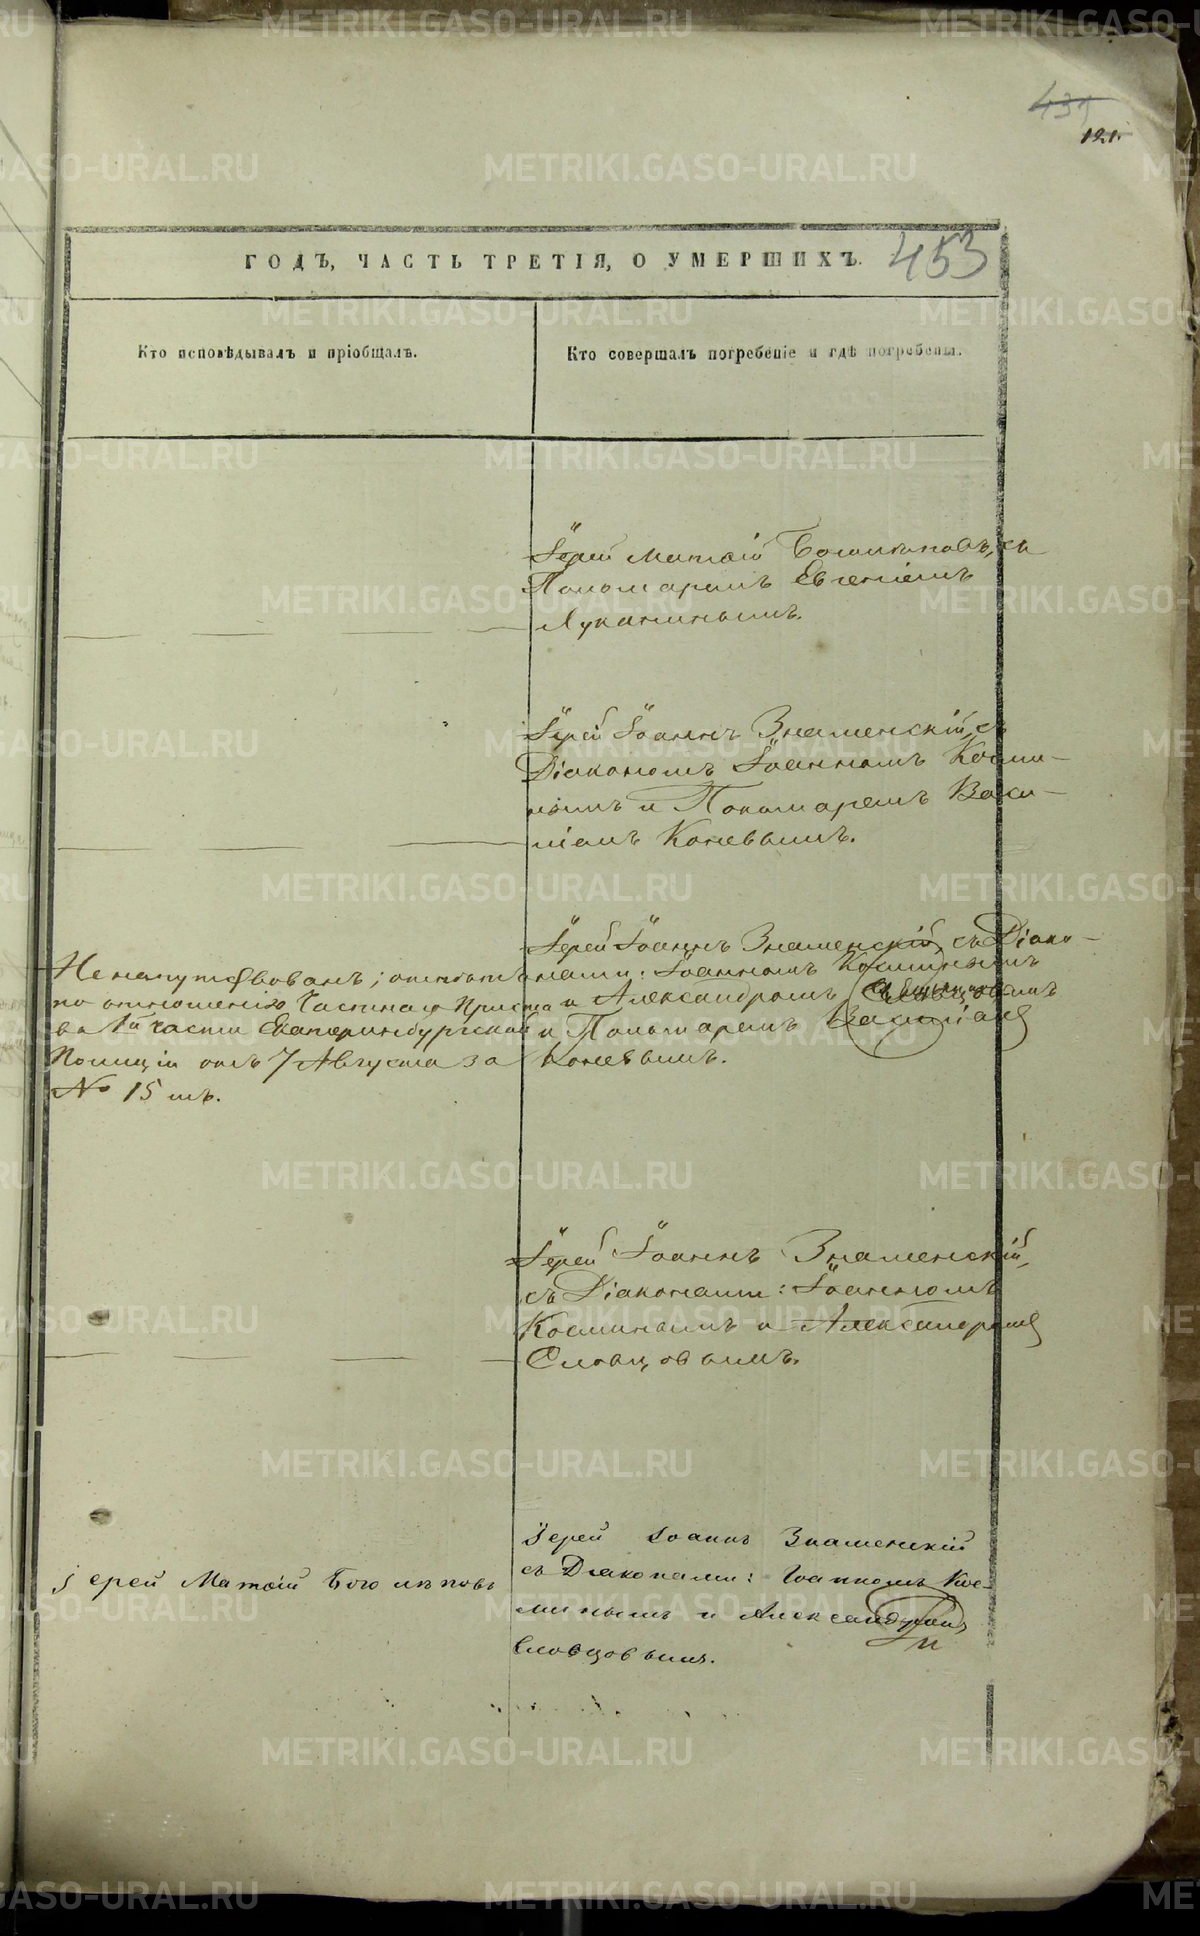 431
121.
453
ГОДЪ, ЧАСТЬ ТРЕТІЯ, О УМЕРШИХЪ.
Кто исповѣдывалъ и пріобщалъ.
Кто совершалъ погребеніе и гдѣ погребены.
Іерей Матѳій Боголѣповъ, съ
Пономаремъ Евгеніемъ
Луканинымъ.
Іерей Іоаннъ Знаменскій, съ
Діакономъ Іоанномъ Косми-
нымъ и Пономаремъ
Коневымъ.
Не напутствованъ;
по отношенію Частнаго Приста
ва 1й части Екатеринбургской
Полиціи отъ 7 Августа за
№ 15 мъ.
Іерей Іоаннъ Знаменскій, съ Діако-
нами: Іоанномъ Косминымъ
и Александромъ
и Пономаремъ
Коневымъ.
Іерей Іоаннъ Знаменскій,
съ Діаконами: Іоанномъ
Косминымъ и Александромъ
Словцовымъ.
Іерей Матѳій Боголѣповъ
Іерей Іоаннъ Знаменскій
съ Діаконами: Іоанномъ Кос-
минымъ и Александромъ
Словцовымъ.
METRIKI.GASO-URAL.RU